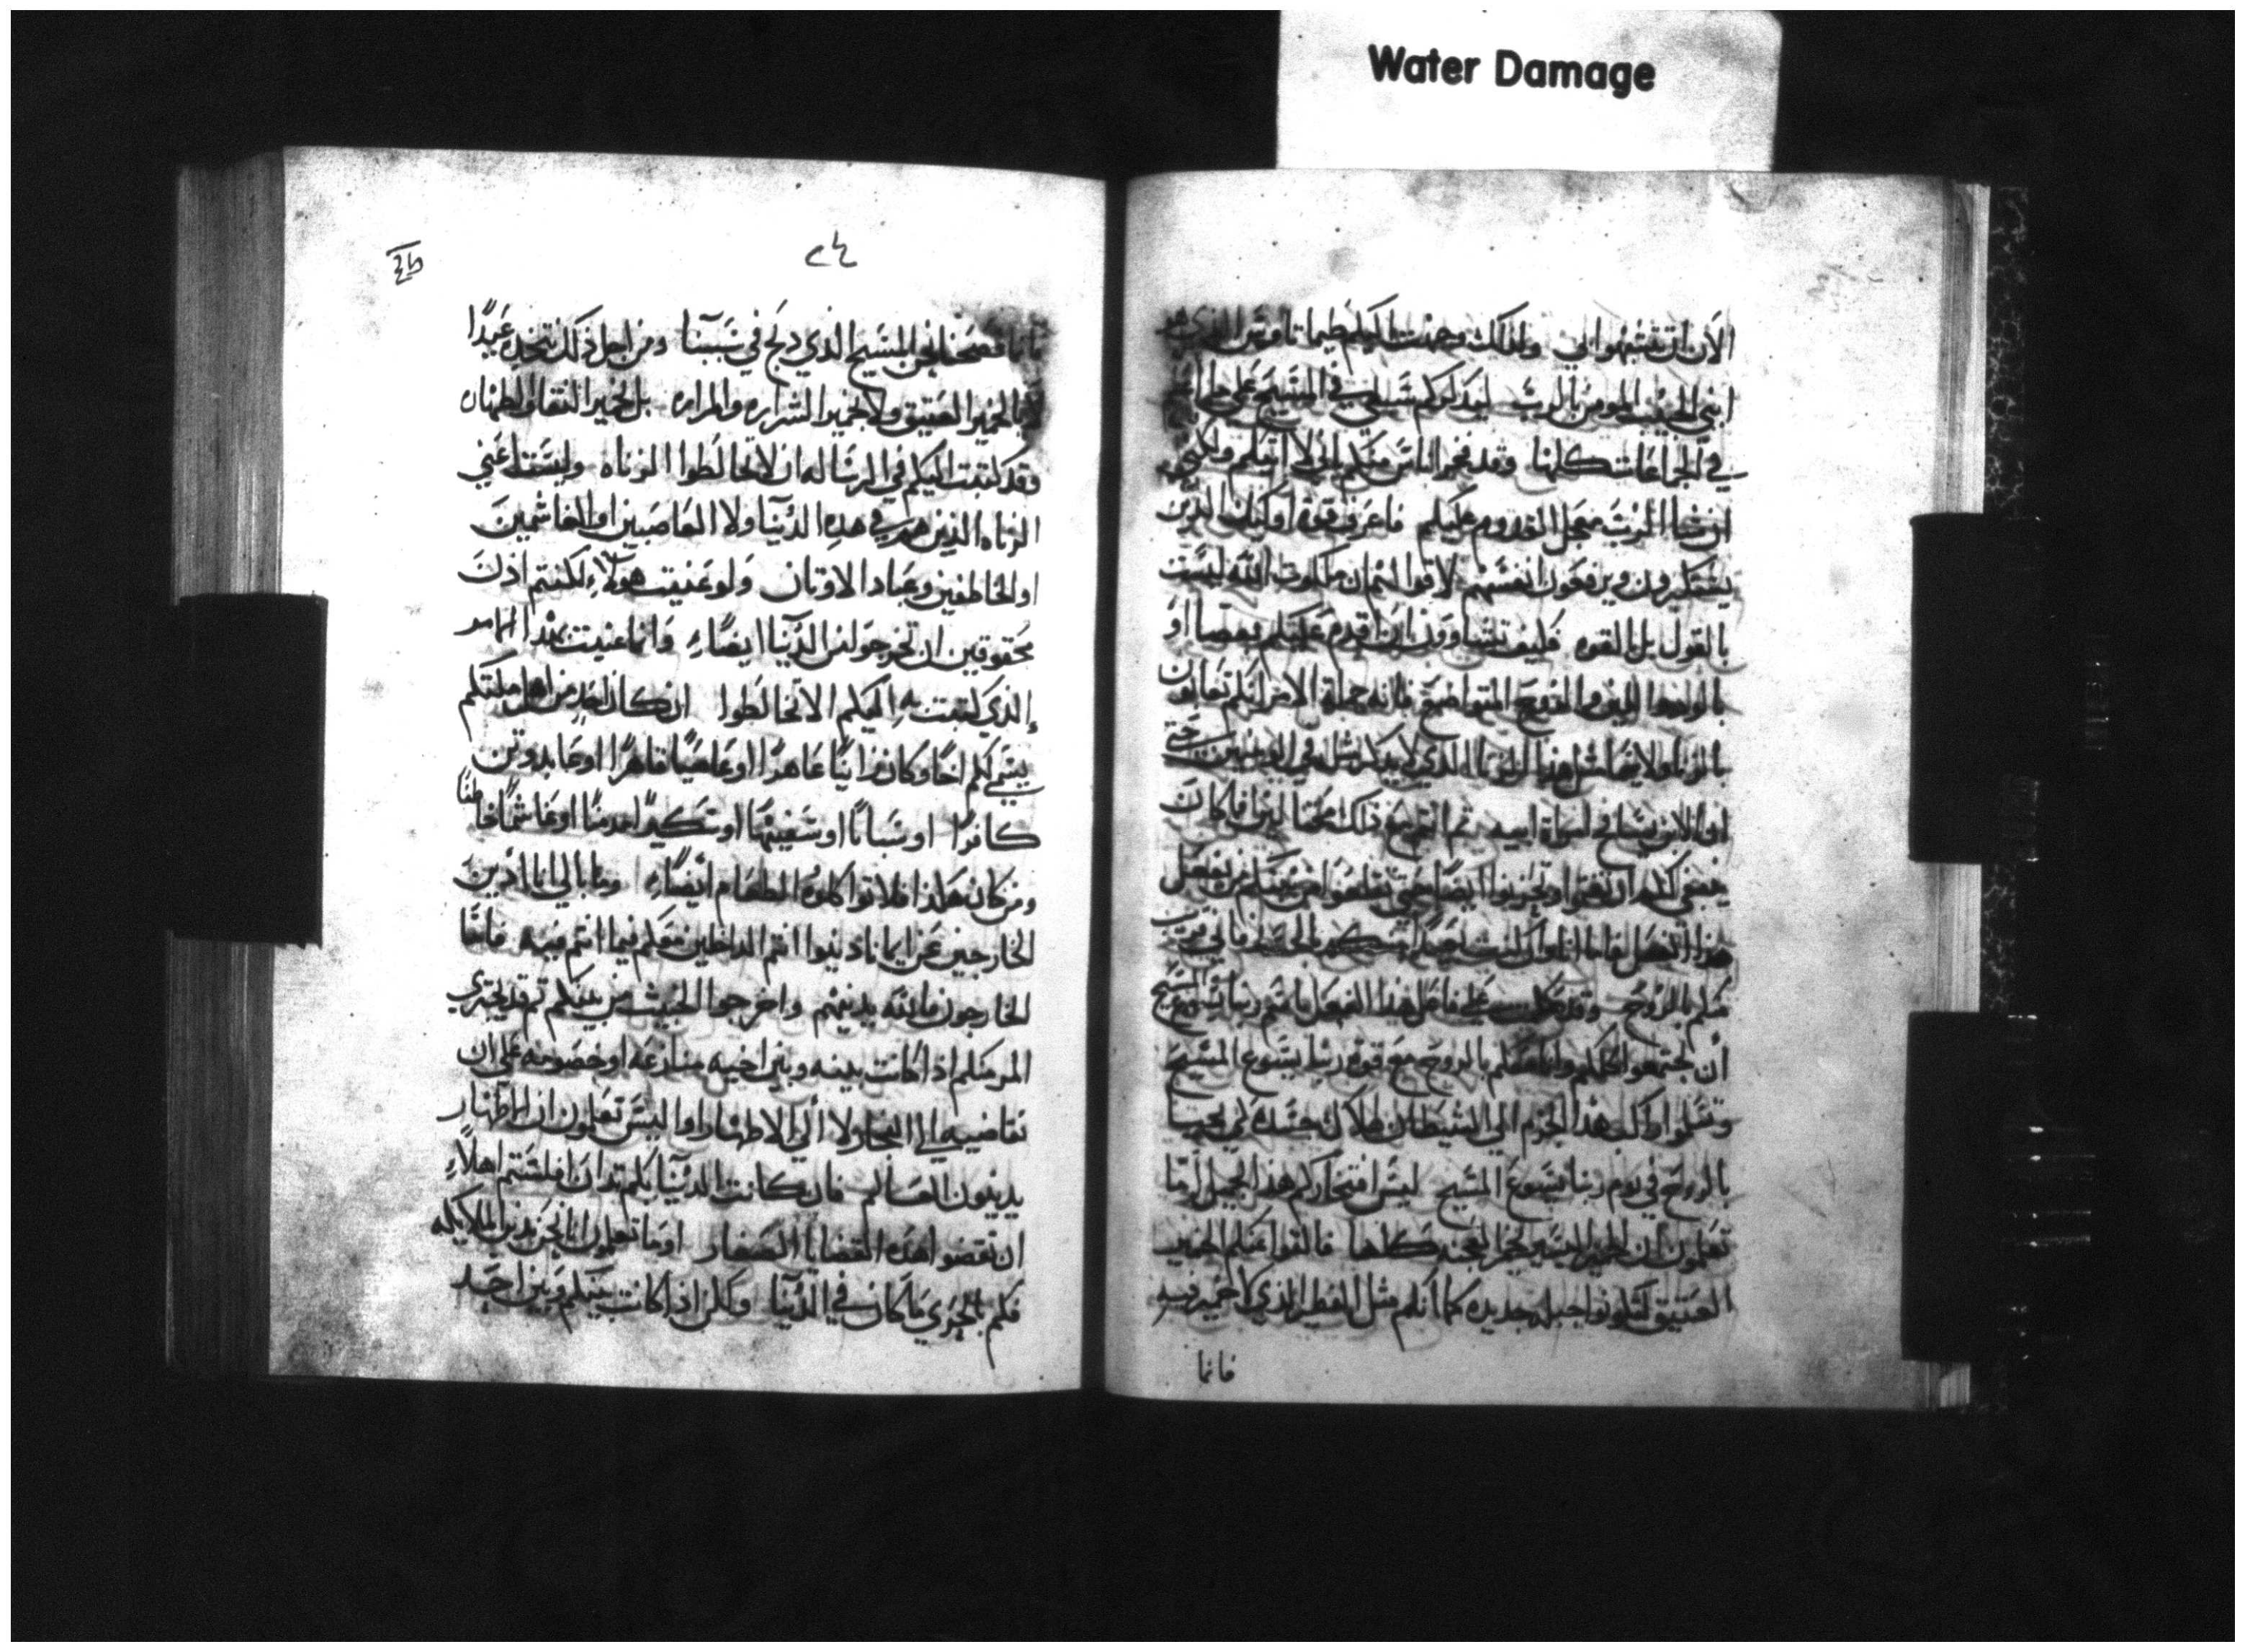 Water Damage
الان ان تتشبهوا بي ولذلك وجهت اليكم طيماتاوس الذي هو
ابني الحبيب المومن بالرب ليذكركم سبلي في المسيح على ما اعلم
في الجماعات كلها وقد فخر اناس منكم باني لا اتيكم ولكني
ان شا الرب معجل القدوم عليكم فاعرف قوة اوليك الذين
يستكبرون ويرفعون انفسهم لا قولهم ان ملكوت الله ليست
بالقول بل بالقوه فكيف تشاوون ان اقدم عليكم بعصا او
بالود والروح المتواضعة فانه جملة الامر انكم تعابون
بالزنا ولا يما مثل هذا الزنا الذي لا يذكر مثله في الوثنيين حتى
ان الابن يتخا في امراة ابيه ثم انتم مع ذلك مختالين فاكان
ينبغي لكم ان تغتموا وتحزنوا ايضا حتى تقلعوا من بينكم من يفعل
هذا الفعل فاما انا وان كنت بعيدا منكم بالجسد فاني قريب
منكم بالروح وقد حكمت على فاعل هذا الفعل باسم ربنا يسوع المسيح
ان تجتمعوا كلكم وانا معكم بالروح مع قوة ربنا يسوع المسيح
وتسلموا ذلك هذا الجرم الى الشيطان لهلاك جسده كي يحيا
بالروح في يوم ربنا يسوع المسيح ليس افتخاركم هذا بجميل اما
تعلمون ان الخمير اليسير يخمر العجنه كلها فالقوا عنكم الخمير
العتيق لتكونوا جبله جديده كما انكم مثل الفطير الذي لا خمير فيه
فانما
٢٤
فانما فصحنا نحن المسيح الذي ذبح في سببنا ومن اجل ذلك نتخذه عيدا
لا بالخمير العتيق ولا بخمير الشراره والمراره بل بخمير النقا والطهاره
وقد كتبت اليكم في الرساله ان لا تخالطوا الزناه وليست اعني
الزناه الذين هم في هذه الدنيا ولا الغاصبين او الغاشمين
او الخاطفين وعباد الاوتان ولو عنيت هولاء لكنتم اذن
محقوقين ان تخرجوا من الدنيا ايضاء وانما عنيت بهذا الامر
الذي كتبت به اليكم الا تخالطوا ان كان احد من اهل ملتكم
يسمى لكم اخا وكان زانيا عاهرا او غاصبا قاهرا او عابد وتن
كافرا او سبابا او سفيها او سكيرا مدمنا او غاشما خاطفا
ومن كان هكذا فلا تواكلوه الطعام ايضاء وما بالي انا ادين
الخارجين عن ايماننا دينوا انتم الداخلين معكم فيما انتم فيه فاما
الخارجون فالله يدينهم واخرجوا الخبيث من بينكم ثم قد يجتري
المر منكم اذا كانت بينه وبين اخيه منازعه او خصومه على ان
يقاضيه الى الفجار ولا الى الاطهار اوا ليس تعلمون ان الاطهار
يدينون العالم فان كانت الدنيا بكم تدان افلستم اهلاء
ان تقضوا هذه القضايا الصغار اوما تعلمون انا نحن ندين الملايكه
فكم بالحري ما كان في الدنيا ولكن اذا كانت بينكم وبين احد